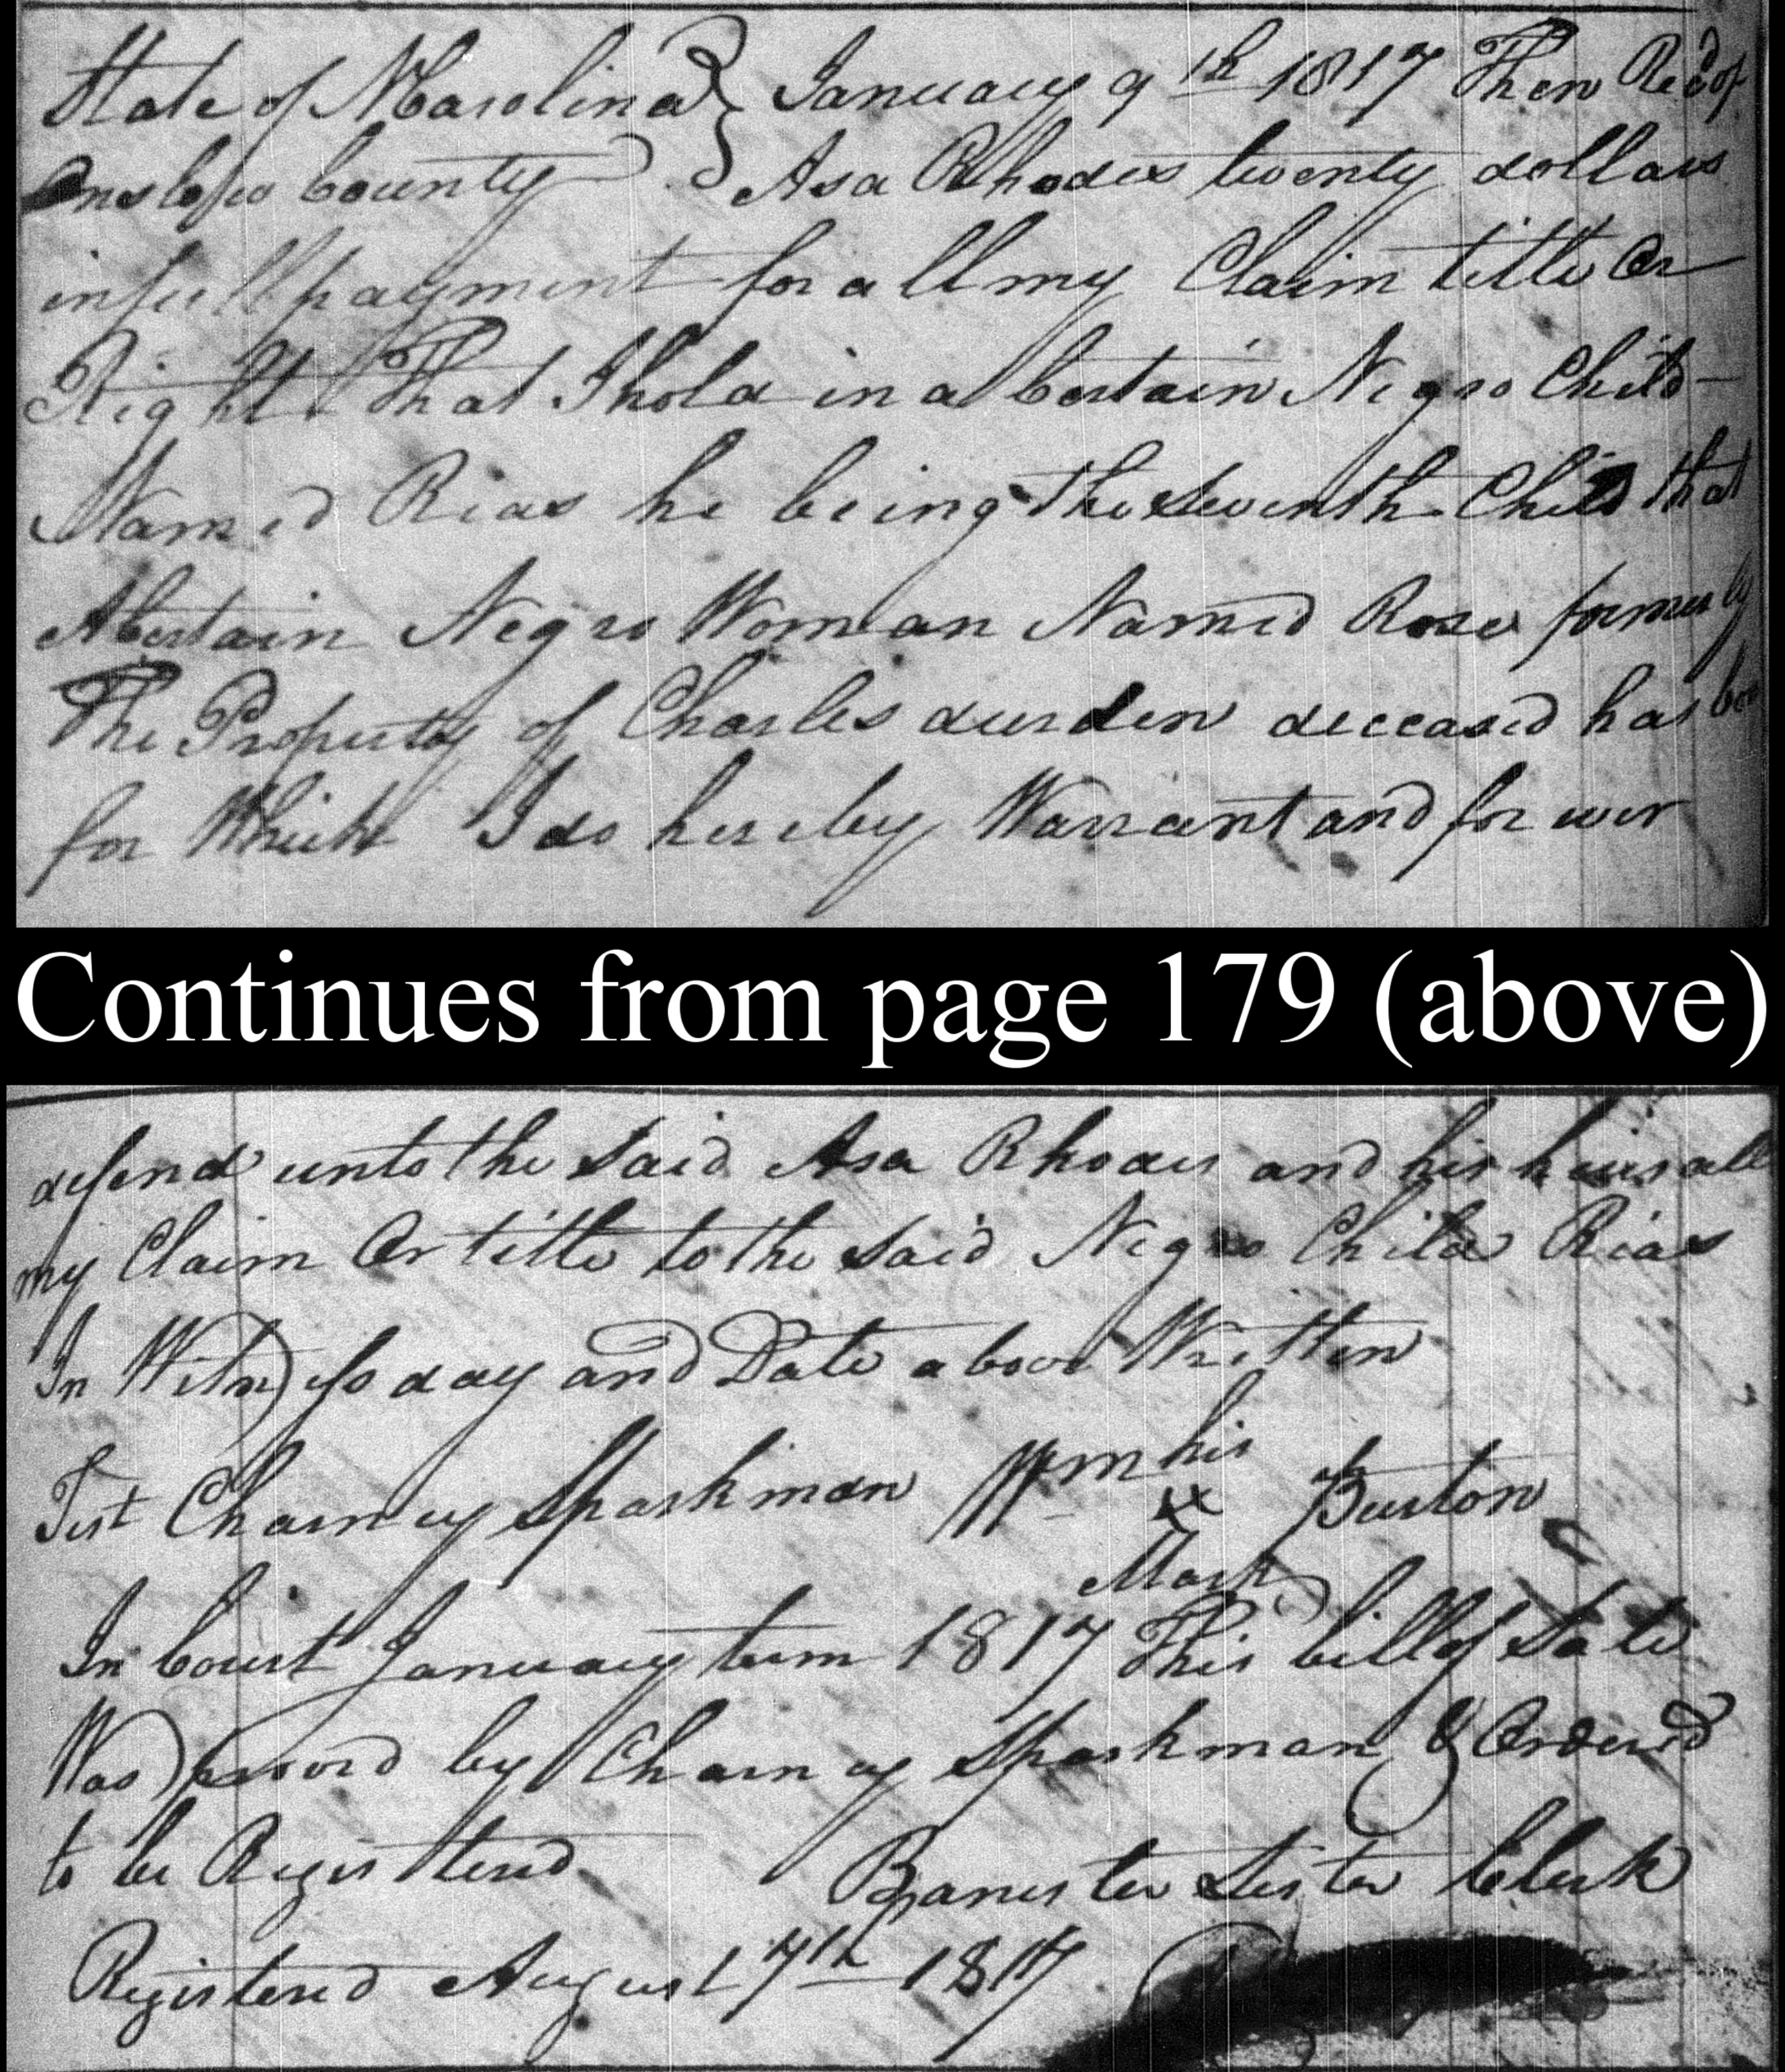 State of NCarolina } January 9th 1817 Then Recd of
Onslow County } Asa Rhodes twenty dollars
in full payment for all my Claim title Or
Right That I hold in a Certain Negro Child
Named Rias he being the seventh Child that
A Certain Negro Woman Named Rose formerly
The Property of Charles durden deceased has
for Which I do hereby Warrant and for ever
Continues from page 179 (above)
defend unto the said Asa Rhodes and his heirs all
my Claim Or title to the said Negro Child Rias
In Witness day and Date above Written
his
Test Charney Sparkman Wm X Burton
Mark
In Court January term 1817 This bill of Sale
Was proved by Charney Sparkman & Ordered
to be Registered
Banester Lester Clerk
Registered August 7th 1817